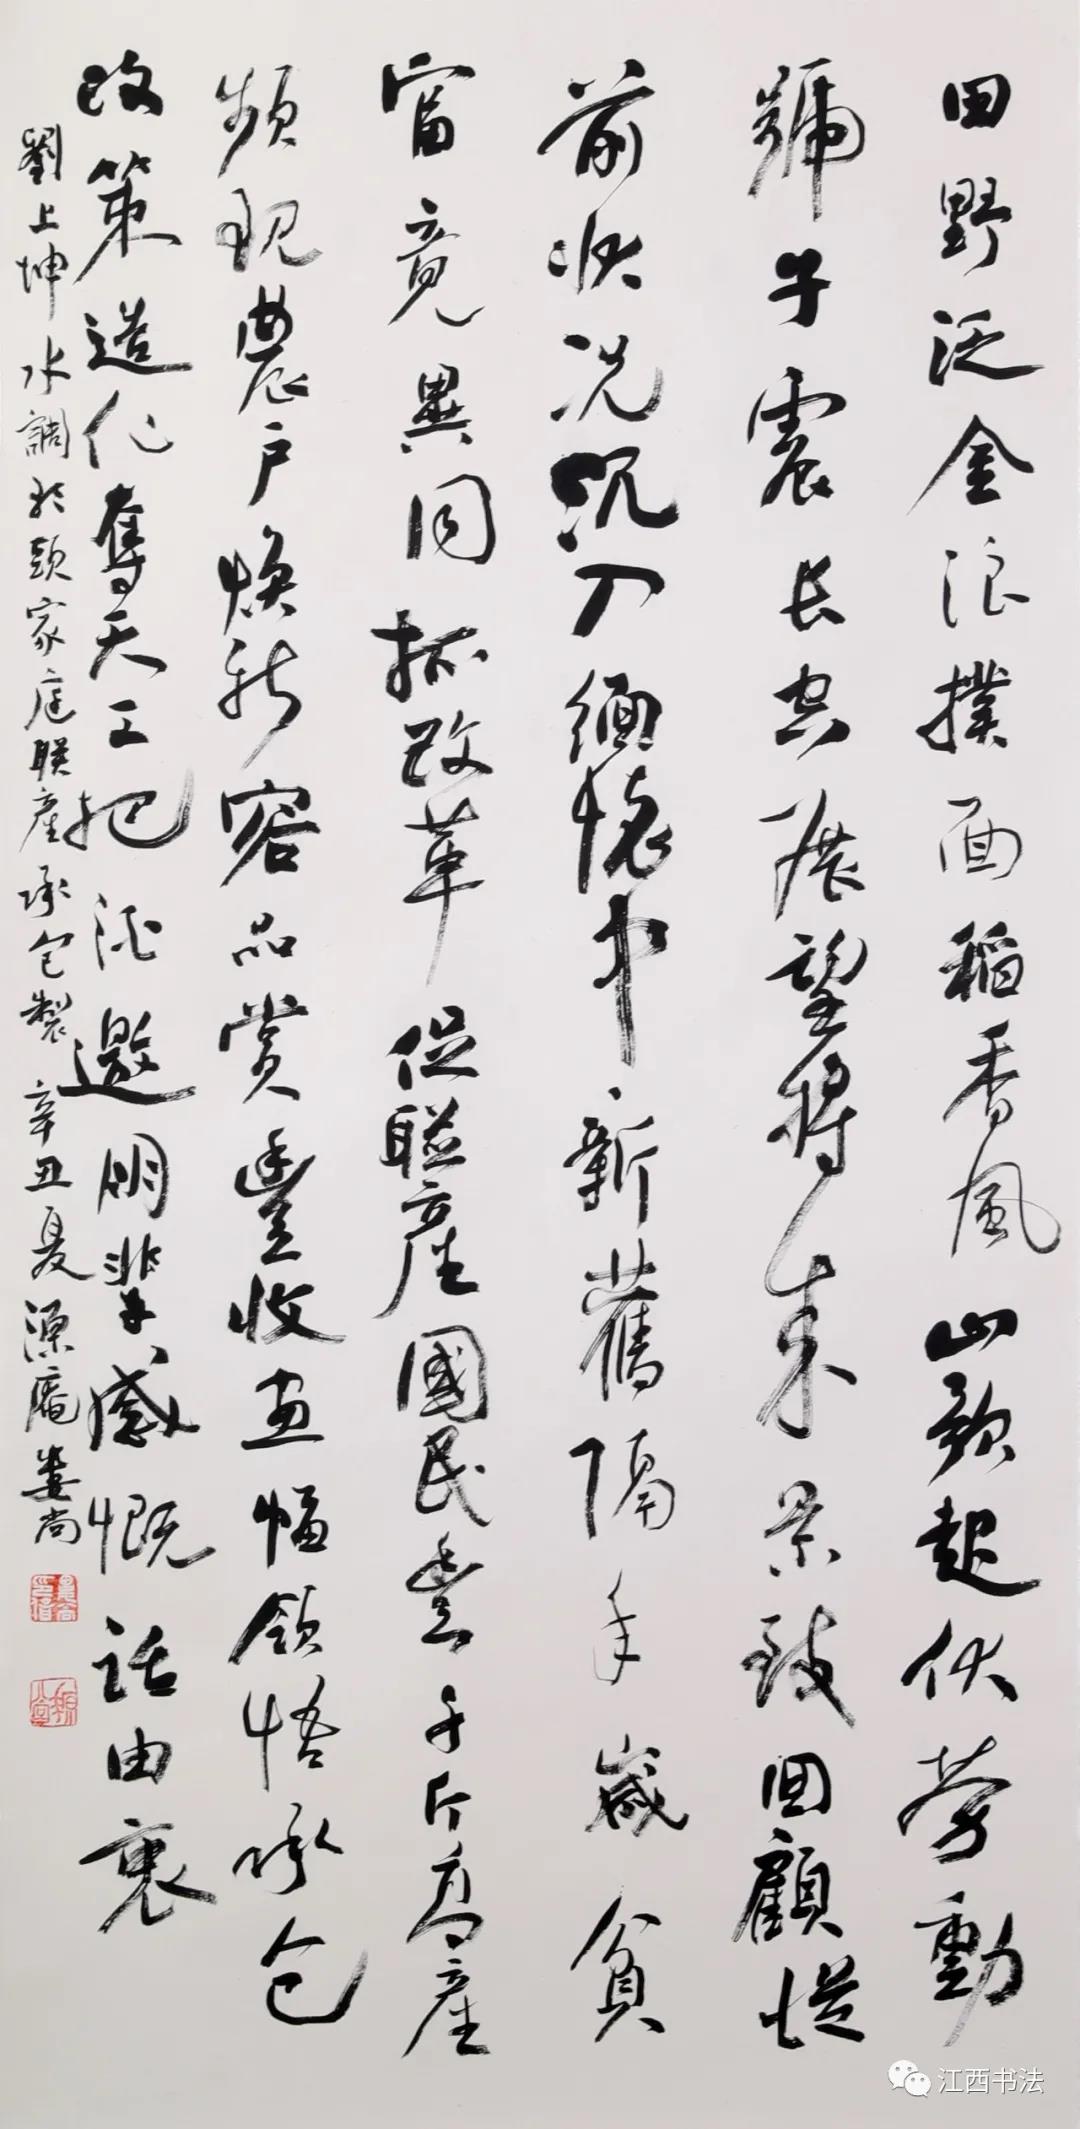 田野泛金浪撲面稻香風山歌起伏勞動
號子震長空展望將來景致回顧從
前狀況沉入緬懷中新舊隔年歲貧
富竟異同抓改革促聯產國民豐千斤高產
頻現農戶煥新容品賞豐收畫幅領悟承包
政策造化奪天工把酒邀朋輩感慨話由衷
劉上坤水調歌頭家庭聯產承包製辛丑夏源庵婁尚
江西书法